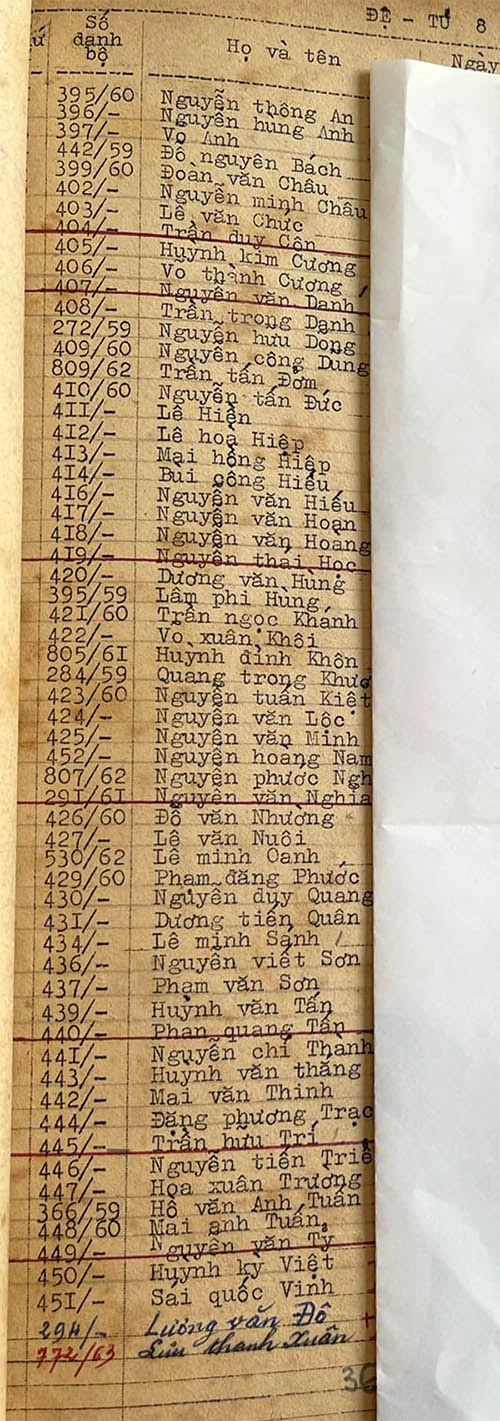 ĐỆ - TỨ 8
Số danh bộ Họ và tên Ngày
395/60 Nguyễn thông An
396/- Nguyễn hùng Anh
397/- Võ Anh
442/59 Đỗ nguyên Bách
399/60 Đoàn văn Châu
402/- Nguyễn minh Châu
403/- Lê văn Chức
404/- Trần duy Côn
405/- Huỳnh kim Cương
406/- Võ thành Cương
407/- Nguyễn văn Danh
408/- Trần trọng Danh
272/59 Nguyễn hữu Dõng
409/60 Nguyễn công Dũng
809/62 Trần tấn Đởm
410/60 Nguyễn tấn Đức
411/- Lê Hiền
412/- Lê hoà Hiệp
413/- Mai hồng Hiệp
414/- Bùi công Hiếu
416/- Nguyễn văn Hiếu
417/- Nguyễn văn Hoàn
418/- Nguyễn văn Hoàng
419/- Nguyễn thái Học
420/- Dương văn Hùng
395/59 Lâm phi Hùng
421/60 Trần ngọc Khánh
422/- Võ xuân Khôi
805/61 Huỳnh đình Khôn
284/59 Quang trọng
423/60 Nguyễn tuấn Kiệt
424/- Nguyễn văn Lộc
425/- Nguyễn văn Minh
452/- Nguyễn hoàng Nam
807/62 Nguyễn phước Ngh
291/61 Nguyễn văn Nghĩa
426/60 Đỗ văn Nhường
427/- Lê văn Nuôi
530/62 Lê minh Oanh
429/60 Phạm đăng Phước
430/- Nguyễn duy Quang
431/- Dương tiến Quân
434/- Lê minh Sánh
436/- Nguyễn viết Sơn
437/- Phạm văn Sơn
439/- Huỳnh văn Tấn
440/- Phan quang Tấn
441/- Nguyễn chí Thanh
443/- Huỳnh văn thăng
442/- Mai văn Thinh
444/- Đặng phương Trạc
445/- Trần hữu Trí
446/- Nguyễn tiến Triề
447/- Họa xuân Trường
366/59 Hồ văn Anh Tuấn
448/60 Mai anh Tuấn
449/- Nguyễn văn Tý
450/- Huỳnh kỳ Việt
451/- Sái quốc Vinh
294/- Lương văn Đô +
772/63 Lưu thanh Xuân
36